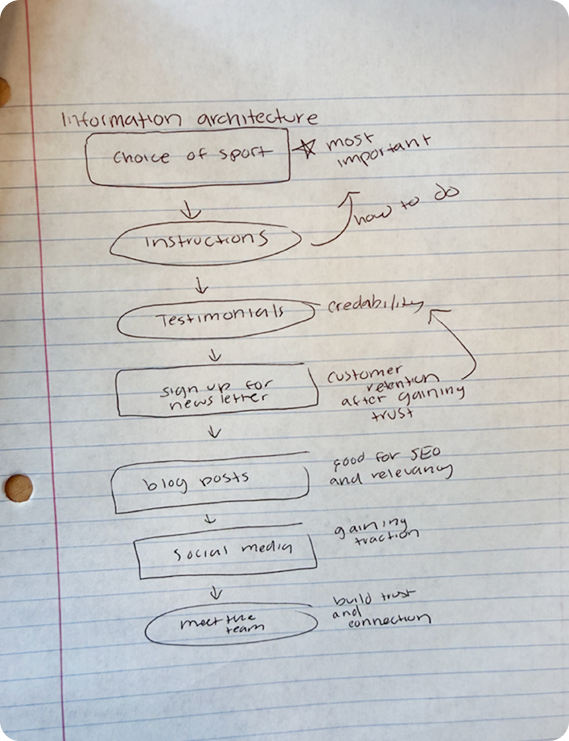 Information architecture
Choice of sport
most
important
Instructions
how to do
Testimonials
credability
sign up for
newsletter
customer
retention
after gaining
trust
blog posts
good for SEO
and relevancy
social media
gaining
traction
meet the
team
build trust
and
connection